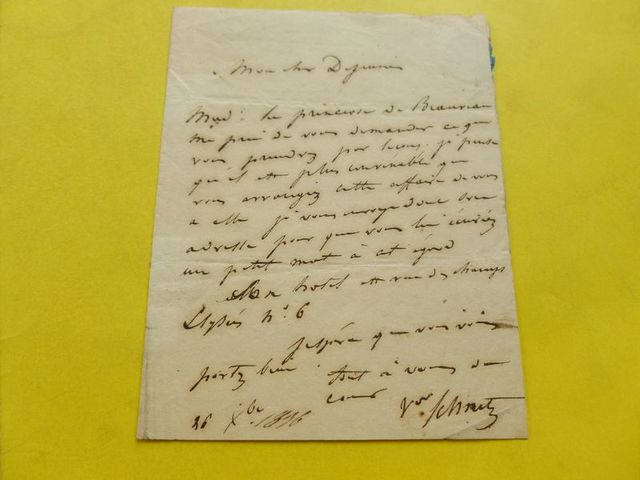 Mon cher
Mad: la princesse de Beauveau
me prie de vous demander ce que
vous prendrez par leçons. je pense
qu'il est plus convenable que
vous arrangiez cette affaire de vous
a elle je vous envoye donc son
adresse pour que vous lui écriviez
un petit mot à cet égard
Son hotel est rue des champs
Elysées N.º 6
J'espère que vous vous
portez bien tout à vous de
coeur
26 Xbre 1836